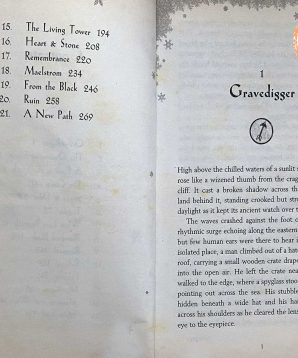 15. The Living Tower 194
16. Heart & Stone 208
17. Remembrance 220
18. Maelstrom 234
19. From the Black 246
20. Ruin 258
21. A New Path 269
1
Gravedigger
High above the chilled waters of a sunlit
rose like a wizened thumb from the
cliff. It cast a broken shadow across
land behind it, standing crooked but
daylight as it kept its ancient watch over
The waves crashed against the foot
rhythmic surge echoing along the eastern
but few human ears were there to hear
isolated place, a man climbed out of a
roof, carrying a small wooden crate
into the open air. He left the crate
walked to the edge, where a spyglass
pointing out across the sea. His
hidden beneath a wide hat and his
across his shoulders as he cleared the
eye to the eyepiece.
1